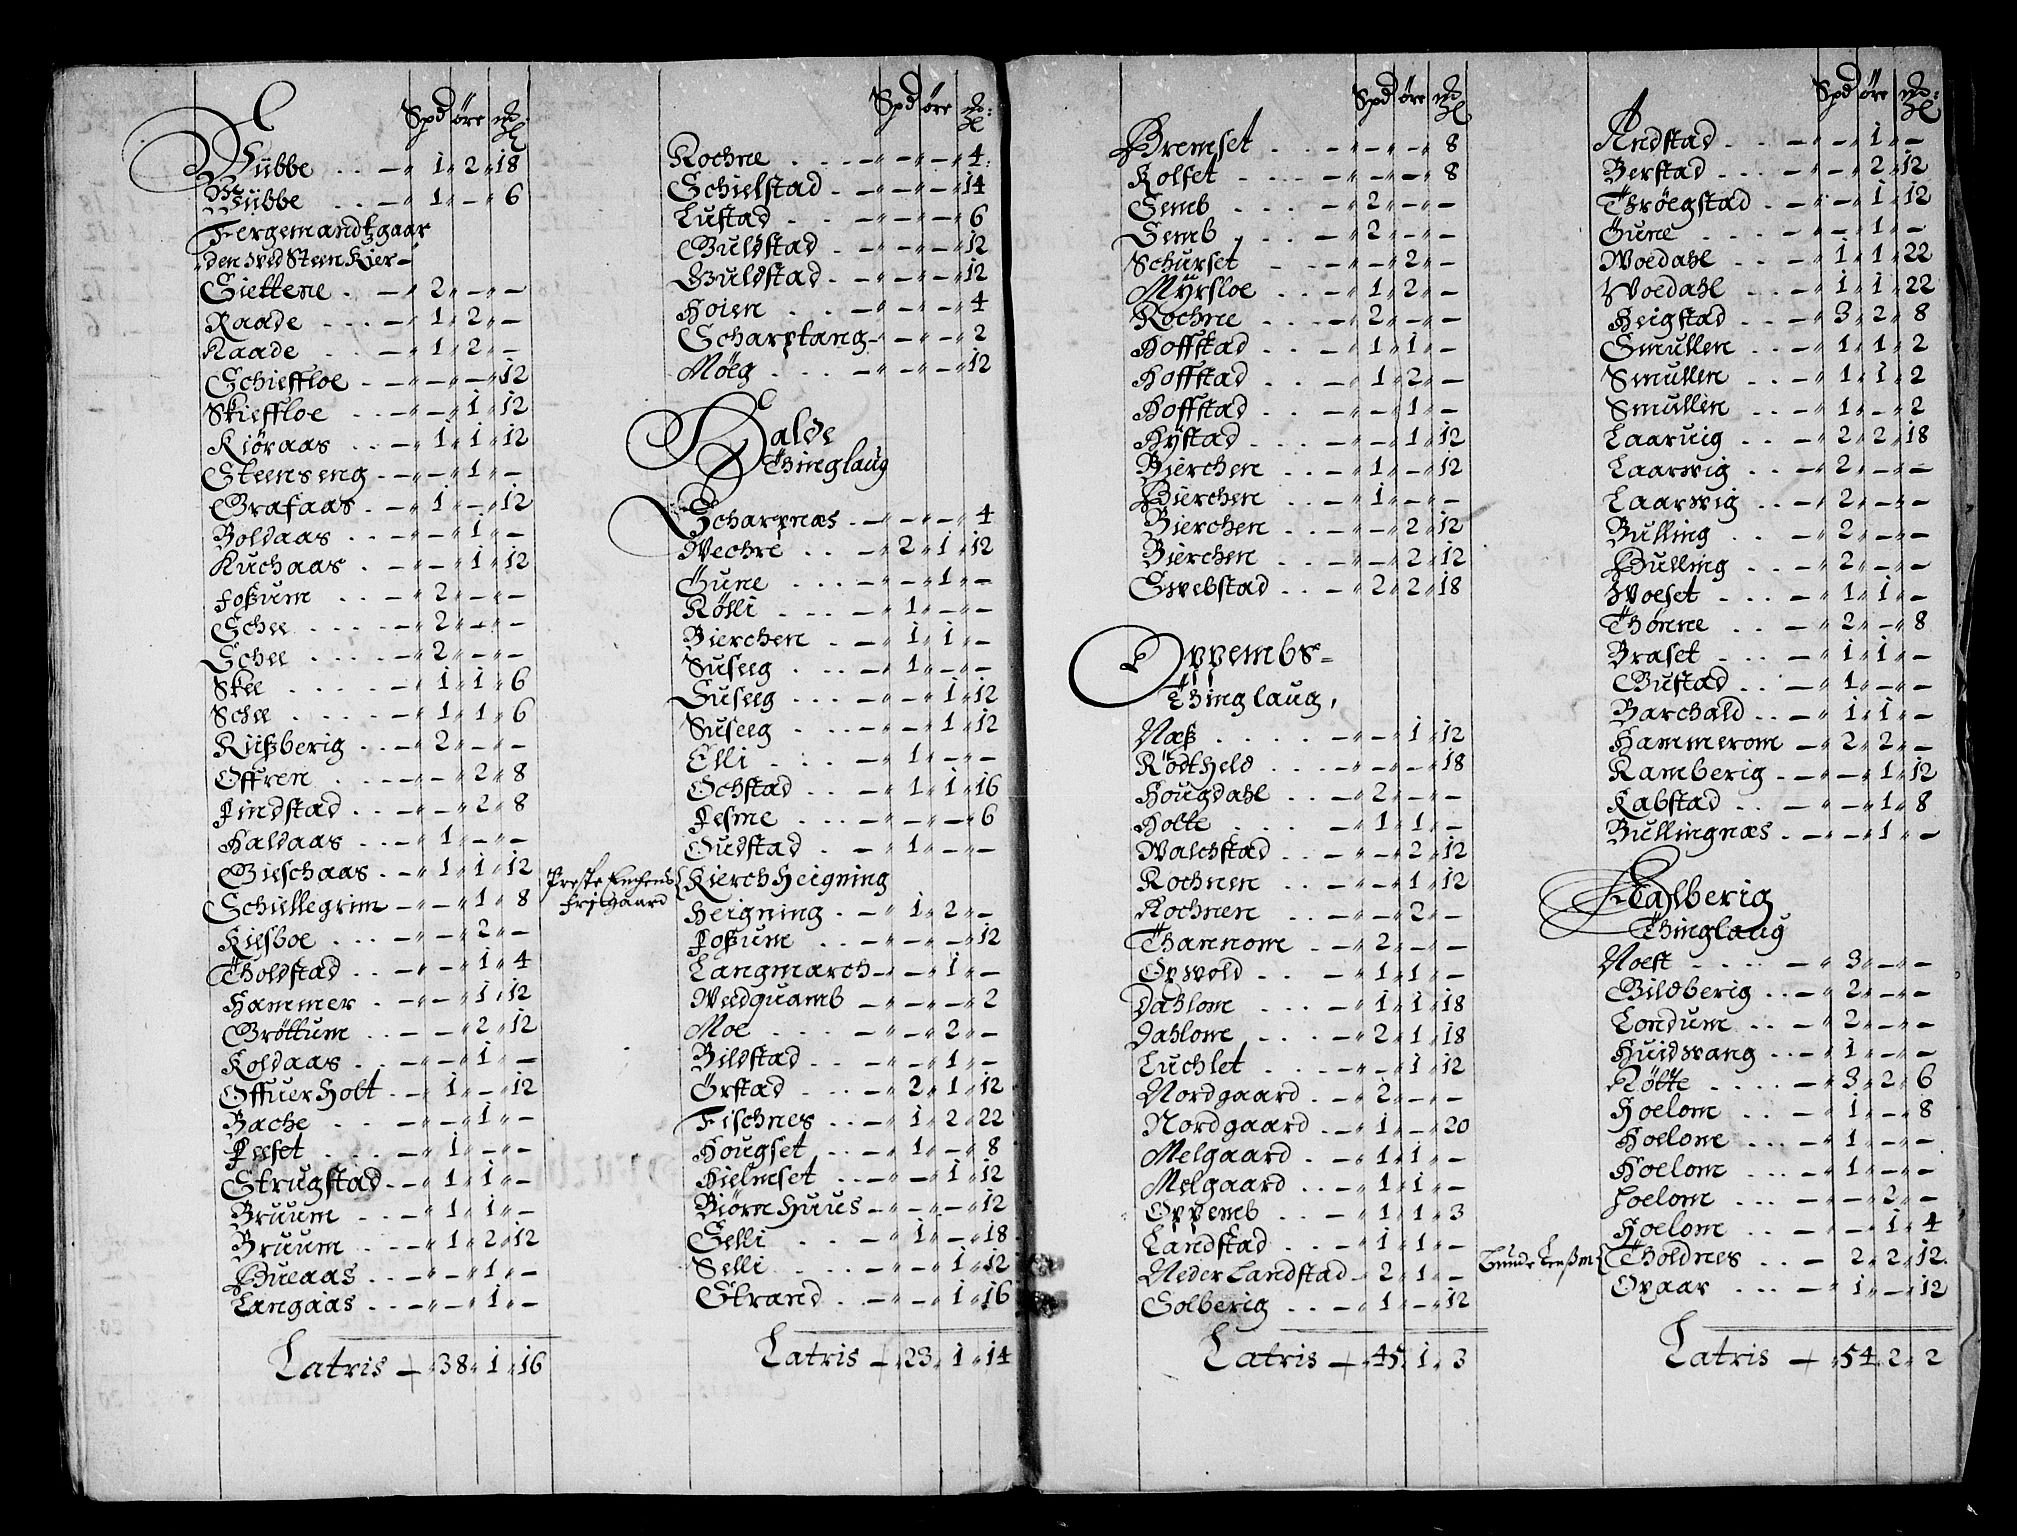 Spd öre mℓ
Bübbe . . — 1 „ 2 „ 18
Bübbe . . — 1 „ — „ 6
Fergemandtzgaar
den wed Steen Kier —
Siettene . — 2 „ — „ —
Raade . . . — 1 „ 2 „ —
Raade . . . — 1 „ 2 „ —
Schieffloe . — „ — „ — „ 12
Skieffloe . . — „ — „ 1 „ 12
Kiöraas . . — 1 „ 1 „ 12
Steenseng . — „ — „ 1 „ —
Grafaas . . — 1 „ — „ 12
Boldaas . . . — „ — „ 1 „ —
Kuchaas . — „ — „ 1 „ 12
Foßum . . — 2 „ — „ —
Schee . . . . — 2 „ — „ —
Schee . . . . — 2 „ — „ —
Skee . . . . — 1 „ 1 „ 6
Schee . . . . — 1 „ 1 „ 6
Küßberig . . — 2 „ — „ —
Offren . . . — „ — „ 2 „ 8
Findstad . . — „ — „ 2 „ 8
Haldaas . . . — 1 „ — „ —
Gieschaas . . — 1 „ 1 „ 12
Schellegrim — „ — „ 1 „ 8
Kiesboe . . . — „ — „ 2 „ —
Tholdstad . . — „ — „ 1 „ 4
Hammer . — „ — „ 1 „ 12
Gröttum . . — „ — „ 2 „ 12
Koldaas . . — „ — „ 1 „ —
Offuer Holt . — 1 „ — „ 12
Bache . . — „ — „ 1 „ —
Feeset . . . — 1 „ — „ —
Strugstad . — 1 „ 1 „ —
Bruum . . . — 1 „ 1 „ —
Bruum . . . — 1 „ 2 „ 12
Bueaas . . — „ — „ 1 „ —
Langaas . . — „ — „ 1 „ —
Latris + „ 38 „ 1 „ 16
Spd öre mℓ
Rochne . . . — „ — „ — „ 4
Schielstad . — „ — „ — „ 14
Lustad . . — „ — „ — „ 6
Guldstad . — „ — „ — „ 12
Guldstad . — „ — „ — „ 12
Hoien . . . — „ — „ — „ 4
Scharptang — „ — „ — „ 2
Möeg . . . — „ — „ — „ 12
Halde
Thinglaug
Scharpnæs . — „ — „ — „ 4
Wechre . . — 2 „ 1 „ 12
Öune . . . — „ — „ 1 „ —
Rölli . . . — 1 „ — „ —
Bierchen . — 1 „ 1 „ —
Suseeg . . . — 1 „ — „ —
Suseeg . . . — „ — „ 1 „ 12
Suseeg . . . — „ — „ 1 „ 12
Elli . . . — 1 „ — „ —
Ochstad . . — 1 „ 1 „ 16
Fesme . . . — „ — „ — „ 6
Oudstad . . — 1 „ — „ —
Preste Enchens
Frijgaard { Kierch Heigning
Heigning . — 1 „ 2 „ —
Foßum . . — „ — „ — „ 12
Langmarch — „ — „ 1 „ —
Wedquamb — „ — „ — „ 2
Moe . . . . — „ — „ 2 „ —
Bildstad . . — „ — „ 1 „ —
Örstad . . . — 2 „ 1 „ 12
Fischnes . . . — 1 „ 2 „ 22
Hougset . . . — 1 „ — „ 8
Hielmset . . — „ — „ 1 „ 12
Biörn Huus — „ — „ — „ 12
Selli . . . — 1 „ — „ 18
Selli . . . — „ — „ 1 „ 12
Strand . . — „ — „ 1 „ 16
Latris + „ 23 „ 1 „ 14
Spd öre mℓ
Bremset . . — „ — „ — „ 8
Kolset . . . — „ — „ — „ 8
Semb . . . — 2 „ — „ —
Semb . . . — 2 „ — „ —
Schurset . . — „ — „ 2 „ —
Myrsloe . . — 1 „ 2 „ —
Rochne . . . — 2 „ — „ —
Hoffstad . . — 1 „ 1 „ —
Hoffstad . . . 1 „ 2 „ —
Hoffstad . . — „ — „ 1 „ —
Hystad . . . — „ — „ 1 „ 12
Bierchen . . — 1 „ — „ 12
Bierchen . . — 1 „ — „ —
Bierchen . . — „ — „ 2 „ 12
Bierchen . . — „ — „ 2 „ 12
Swebstad . . — 2 „ 2 „ 18
Oppembs —
Thinglaug,
Næß . . . . . — „ — „ 1 „ 12
Rödtheld . . . — „ — „ — „ 18
Hougdahl . . — 2 „ — „ —
Holte . . . . — 1 „ 1 „ —
Walchstad . . — „ — „ 2 „ 12
Rochnen . . . — „ — „ 1 „ 12
Rochnen . . . — „ — „ 2 „ —
Thannom . . — 2 „ — „ —
Opwold . . . — 1 „ 1 „ —
Dahlom . . . — 1 „ 1 „ 18
Dahlome . . . — 2 „ 1 „ 18
Luchlet . . . — „ — „ 1 „ 12
Nordgaard . . — 2 „ — „ —
Nordgaard . — 1 „ — „ 20
Melgaard . . — 1 „ 1 „ —
Melgaard . . — 1 „ 1 „ —
Oppemb . . — 1 „ 1 „ 3
Landstad . . . — 1 „ 1 „ —
Neder Landstad — 2 „ 1 „ —
Solberig . . . — 1 „ — „ 12
Latris + „ 45 „ 1 „ 3
Spd öre mℓ
Andstad . . — „ — „ 1 „ —
Berstad . . . — „ — „ 2 „ 12
Thröegstad . — „ — „ 1 „ 12
Öune . . . — „ — „ 1 „ —
Woedahl . . — 1 „ 1 „ 22
Woedahl . . — 1 „ 1 „ 22
Heigstad . . — 3 „ 2 „ 8
Smullen . . — 1 „ 1 „ 2
Smullen . . — 1 „ 1 „ 2
Smullen . . — 1 „ — „ 2
Laaruig . . — 2 „ 2 „ 18
Laarwig . . — 2 „ — „ —
Laarwig . . — 2 „ — „ —
Bulling . . — 2 „ — „ —
Bulling . . — 2 „ — „ —
Woeset . . . — 1 „ 1 „ —
Thönne . . — 2 „ — „ 8
Braset . . . — 1 „ 1 „ —
Bustad . . — 1 „ — „ —
Barchald . . — 1 „ 1 „ —
Hammerom — 2 „ 2 „ —
Kamberig — „ — „ 1 „ 12
Kabstad . . — „ — „ 1 „ 8
Bullingnæs . — „ — „ 1 „ —
Stalberig
Thinglaug
Noest . . . . — 3 „ — „ —
Gildberig . . — 2 „ — „ —
Londum . . — 2 „ — „ —
Huidwang . . — 1 „ — „ —
Rölte . . . . — 3 „ 2 „ 6
Hoelom . . . — 1 „ — „ 8
Hoelome . . — 1 „ — „ —
Hoelom . . . — 1 „ — „ —
Hoelom . . . — „ — „ 2 „ —
Hoelom . . . — „ — „ 1 „ 4
{ Tholdnes . . — 2 „ 2 „ 12
Opaar . . . — 1 „ — „ 12
Latris + „ 54 „ 2 „ 2